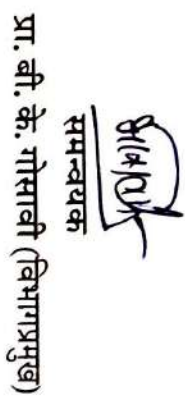 समन्वयक
प्रा. बी. के. गोसावी (विभागप्रमुख)